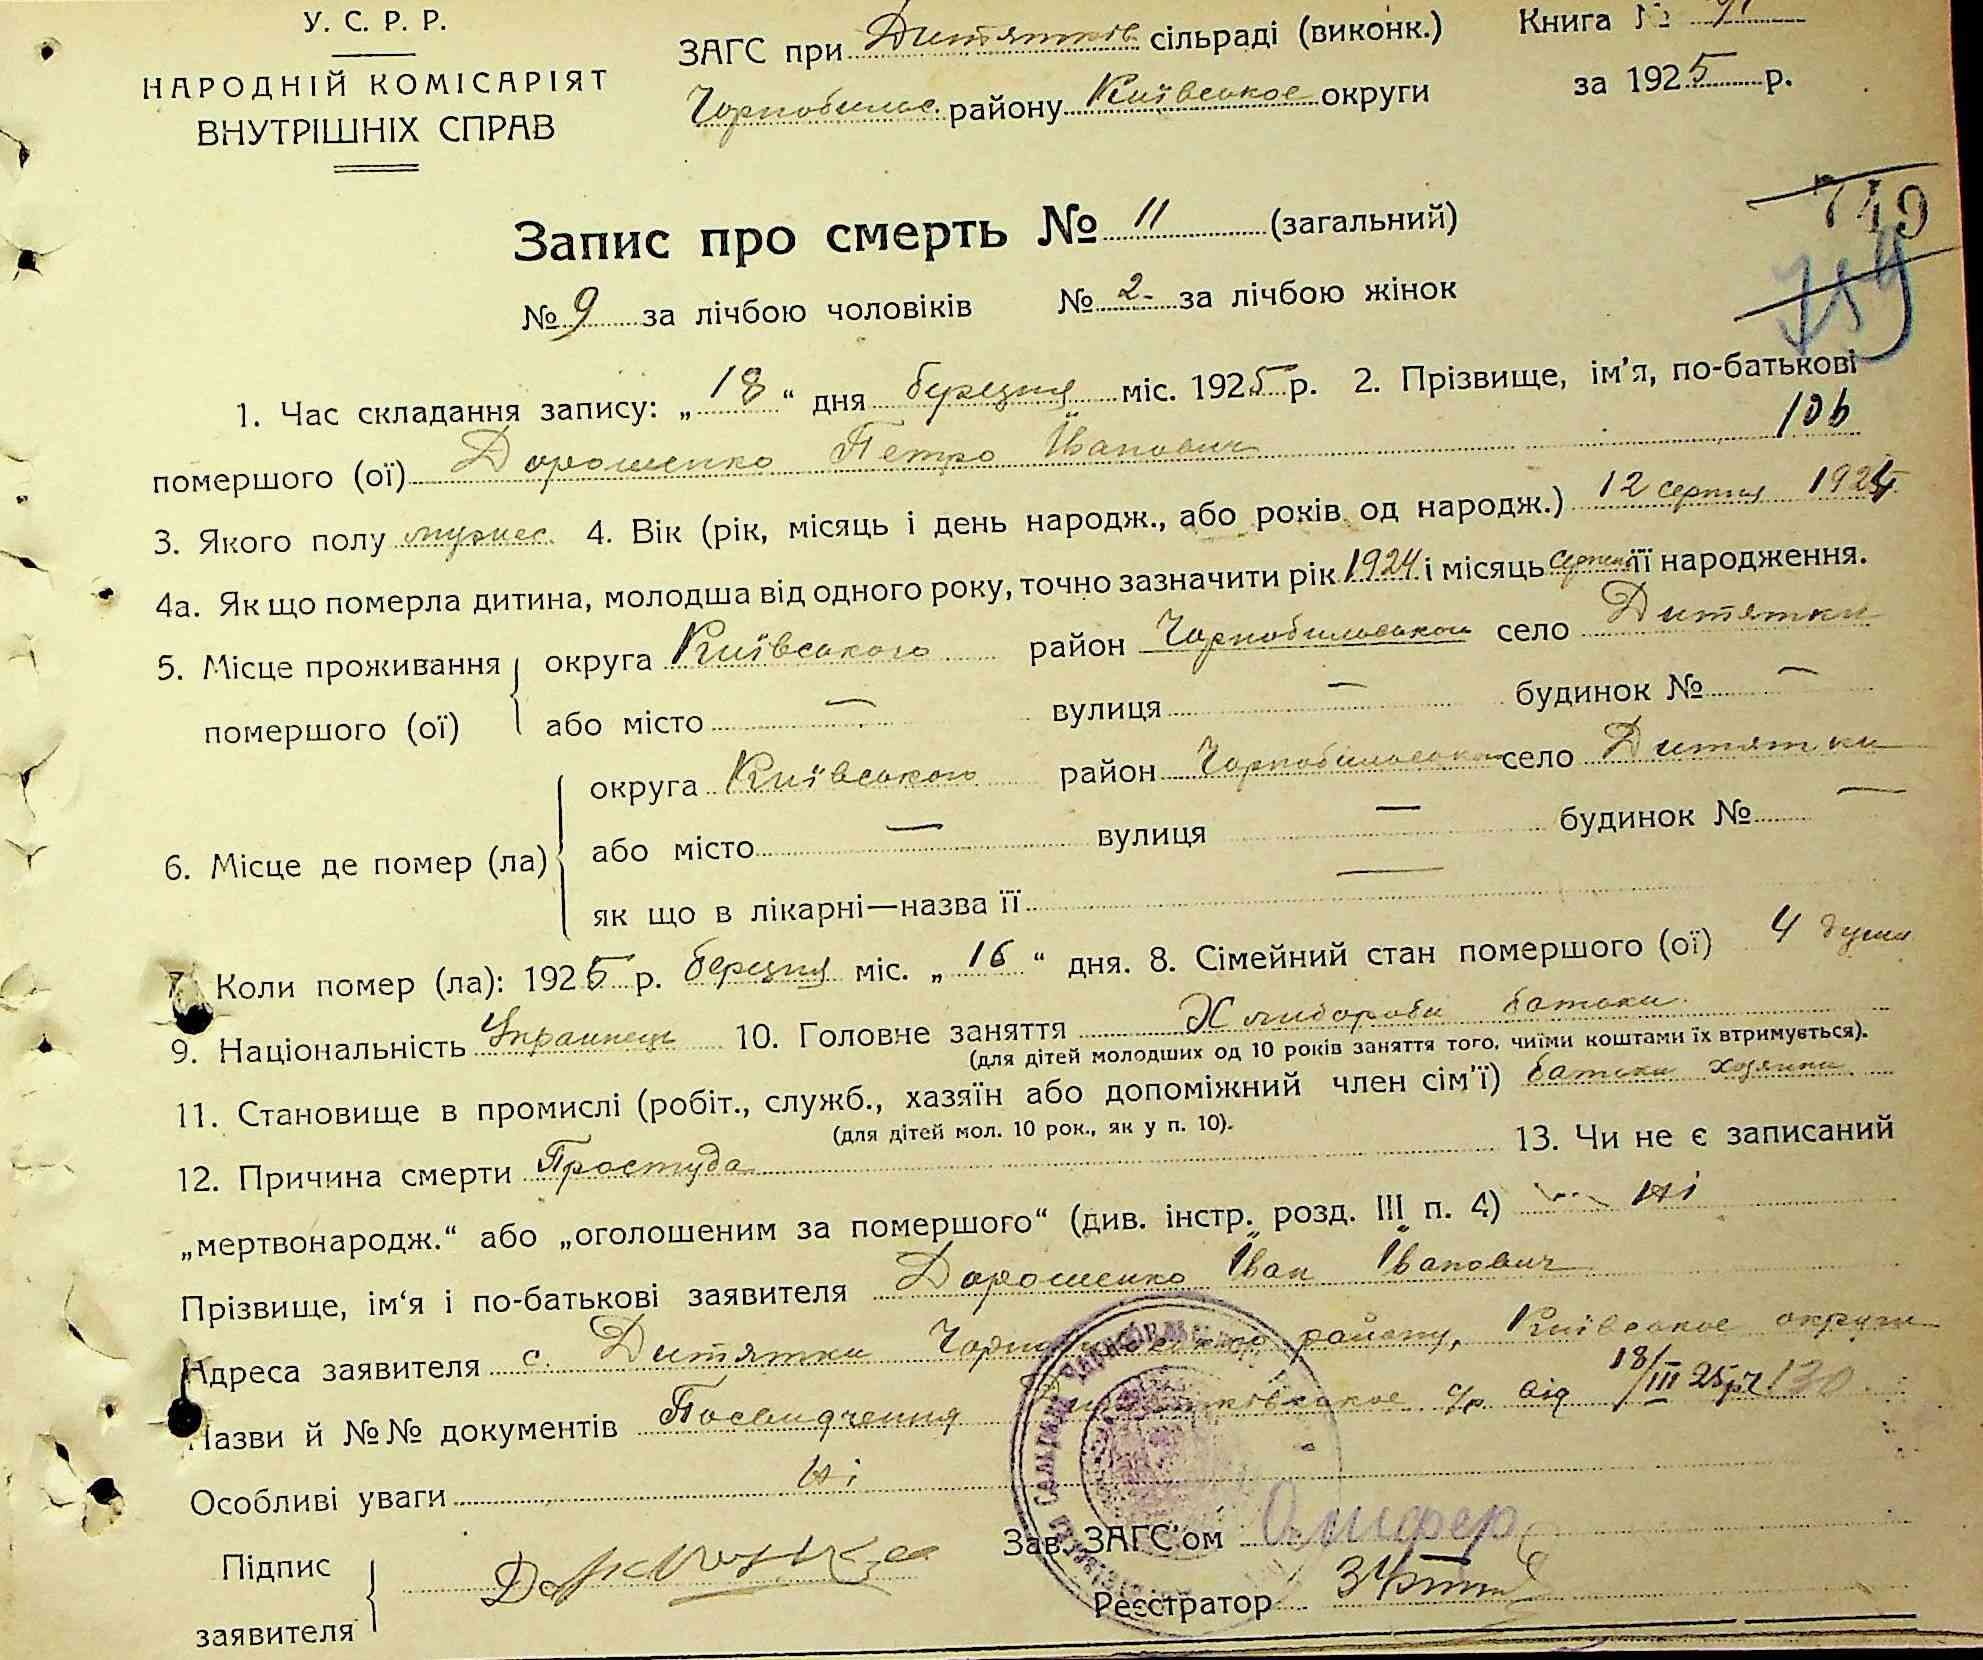 У. С. Р. Р.
НАРОДНІЙ КОМІСАРІЯТ
ВНУТРІШНІХ СПРАВ
ЗАГС при Дитятків сільраді (виконк.)
Чорнобильс. району Київськое округи
Книга №
за 1925 р.
749
759
Запис про смерть № 11 (загальний)
№ 9 за лічбою чоловіків № 2 за лічбою жінок
1. Час складання запису: „18“ дня березня міс. 1925 р. 2. Прізвище, ім’я, по-батькові
помершого (ої) Дорошенко Петро Іванович
3. Якого полу мужес. 4. Вік (рік, місяць і день народж., або років од народж.) 12 серпня 1924
4а. Як що померла дитина, молодша від одного року, точно зазначити рік 1924 і місяць серпень її народження.
5. Місце проживання округа Київського район Чорнобильського село Дитятки
помершого (ої) або місто — вулиця — будинок № —
округа Київського район Чорнобільського село Дитятки
6. Місце де помер (ла) або місто — вулиця — будинок № —
як що в лікарні—назва її —
7. Коли помер (ла): 1925 р. березня міс. „16“ дня. 8. Сімейний стан помершого (ої) 4 души
9. Національність Українець 10. Головне заняття Хлибороби батьки
(для дітей молодших од 10 років заняття того, чиїми коштами їх втримується).
11. Становище в промислі (робіт., служб., хазяїн або допоміжний член сім’ї) батьки хозяини
(для дітей мол. 10 рок., як у п. 10).
12. Причина смерти Простуда 13. Чи не є записаний
„мертвонародж.“ або „оголошеним за помершого“ (див. інстр. розд. III п. 4) ні
Прізвище, ім‘я і по-батькові заявителя Дорошенко Іван Іванович
Адреса заявителя с. Дитятки Чорнобильського району, Київськое округи
Назви й №№ документів Посвидчення Дитятківськое с/р від 18/III 25 р. 130
Особливі уваги ні
Підпис
заявителя
Зав. ЗАГС’ом Олифер
Реєстратор